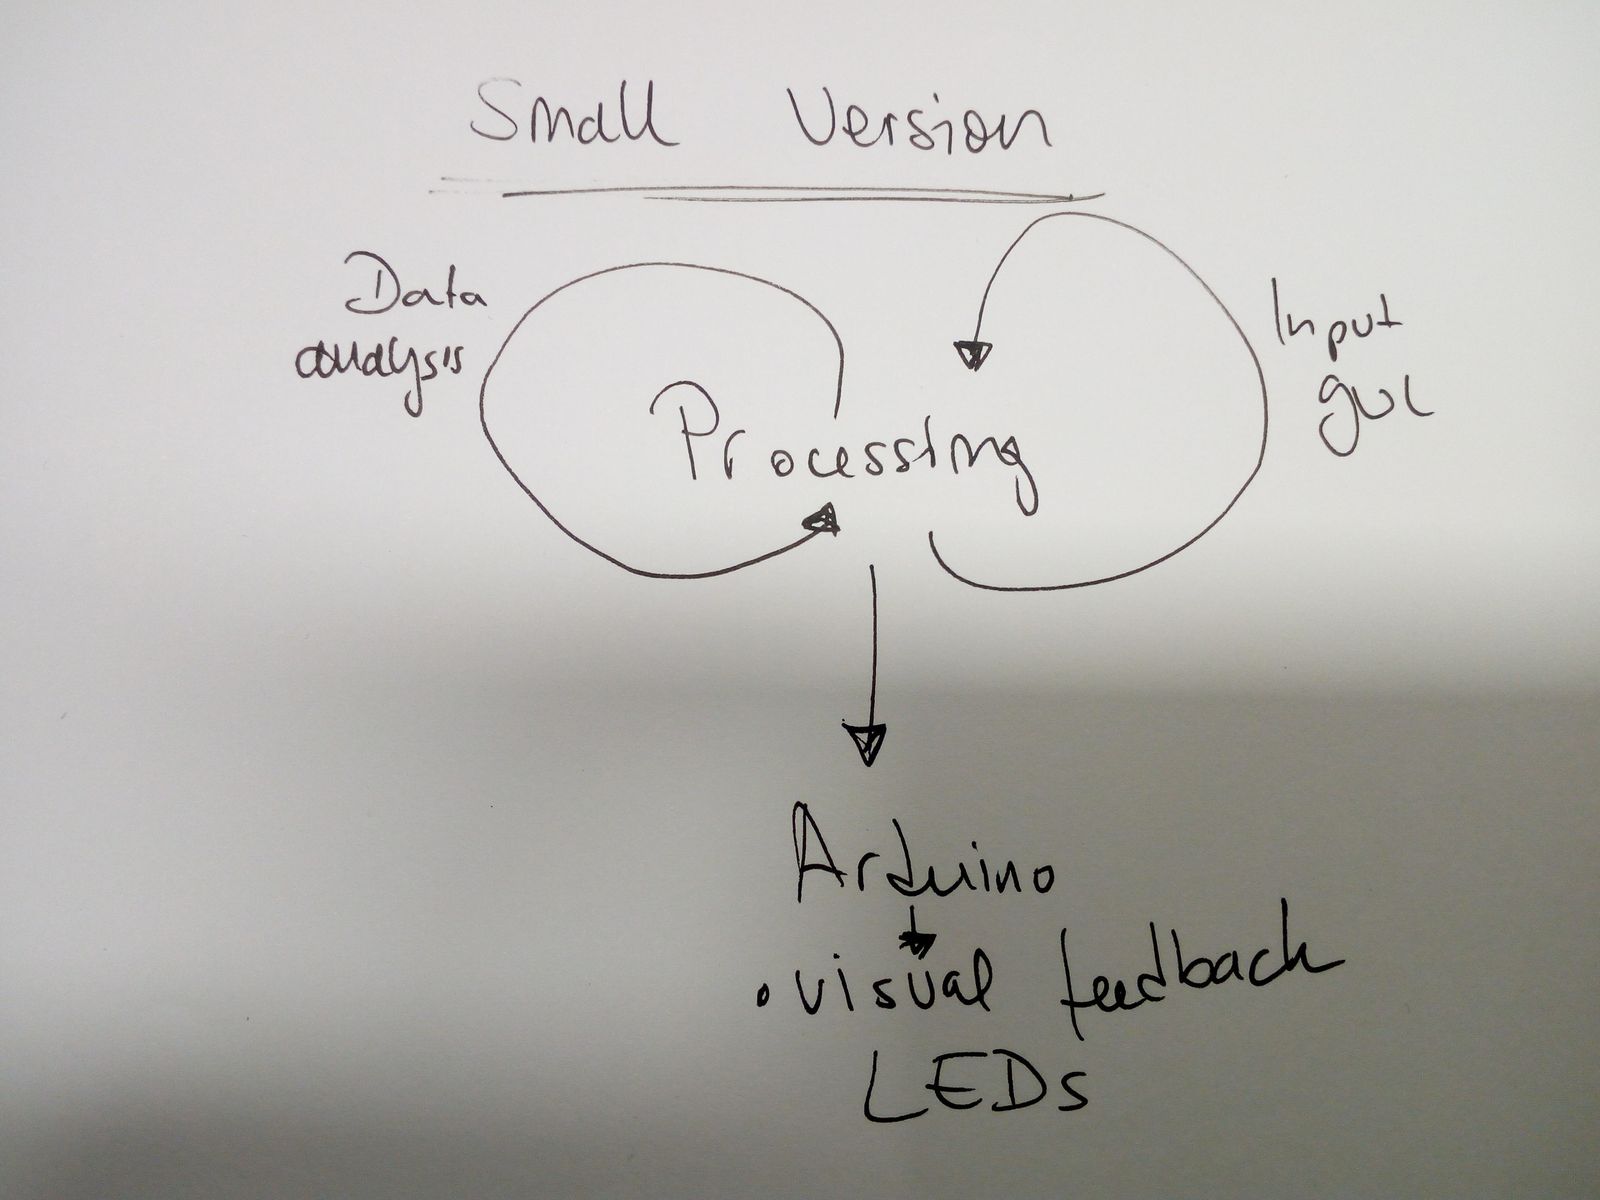 Small Version
Data
analysis
Input
gui
Processing
Arduino
• visual feedback
LEDs